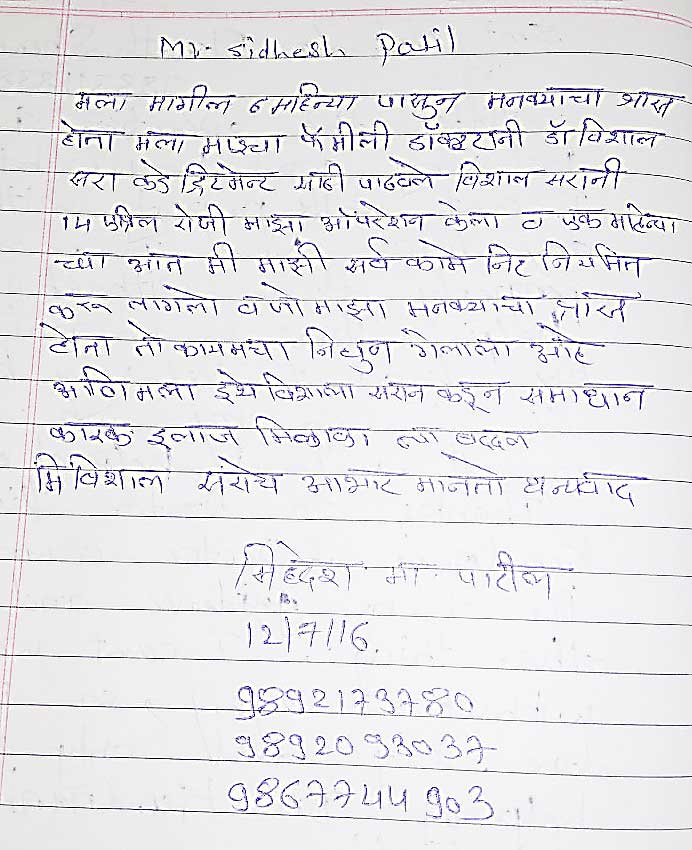 Mr. Sidhesh Patil
मला मागील ६ महिन्या पासुन मनक्याचा त्रास
होता मला माझ्या फॅमीली डॉक्टरांनी डॉ विशाल
सरा कडे ट्रिटमेन्ट साठी पाठवले विशाल सरांनी
14 एप्रिल रोजी माझा ऑपरेशन केला व एक महिन्या
च्या आत मी माझी सर्व कामे निट नियमित
करू लागलो व जो माझा मनक्याचा त्रास
होता तो कायमचा निघुन गेलाला आहे
आणि मला इथे विशाल सरांन कडून समाधान
कारक इलाज मिळाला त्या बद्दल
मि विशाल सरांचे आभार मानतो धन्यवाद
सिध्देश मा. पाटील
12/7/16.
9892173780
9892093037
9867744903